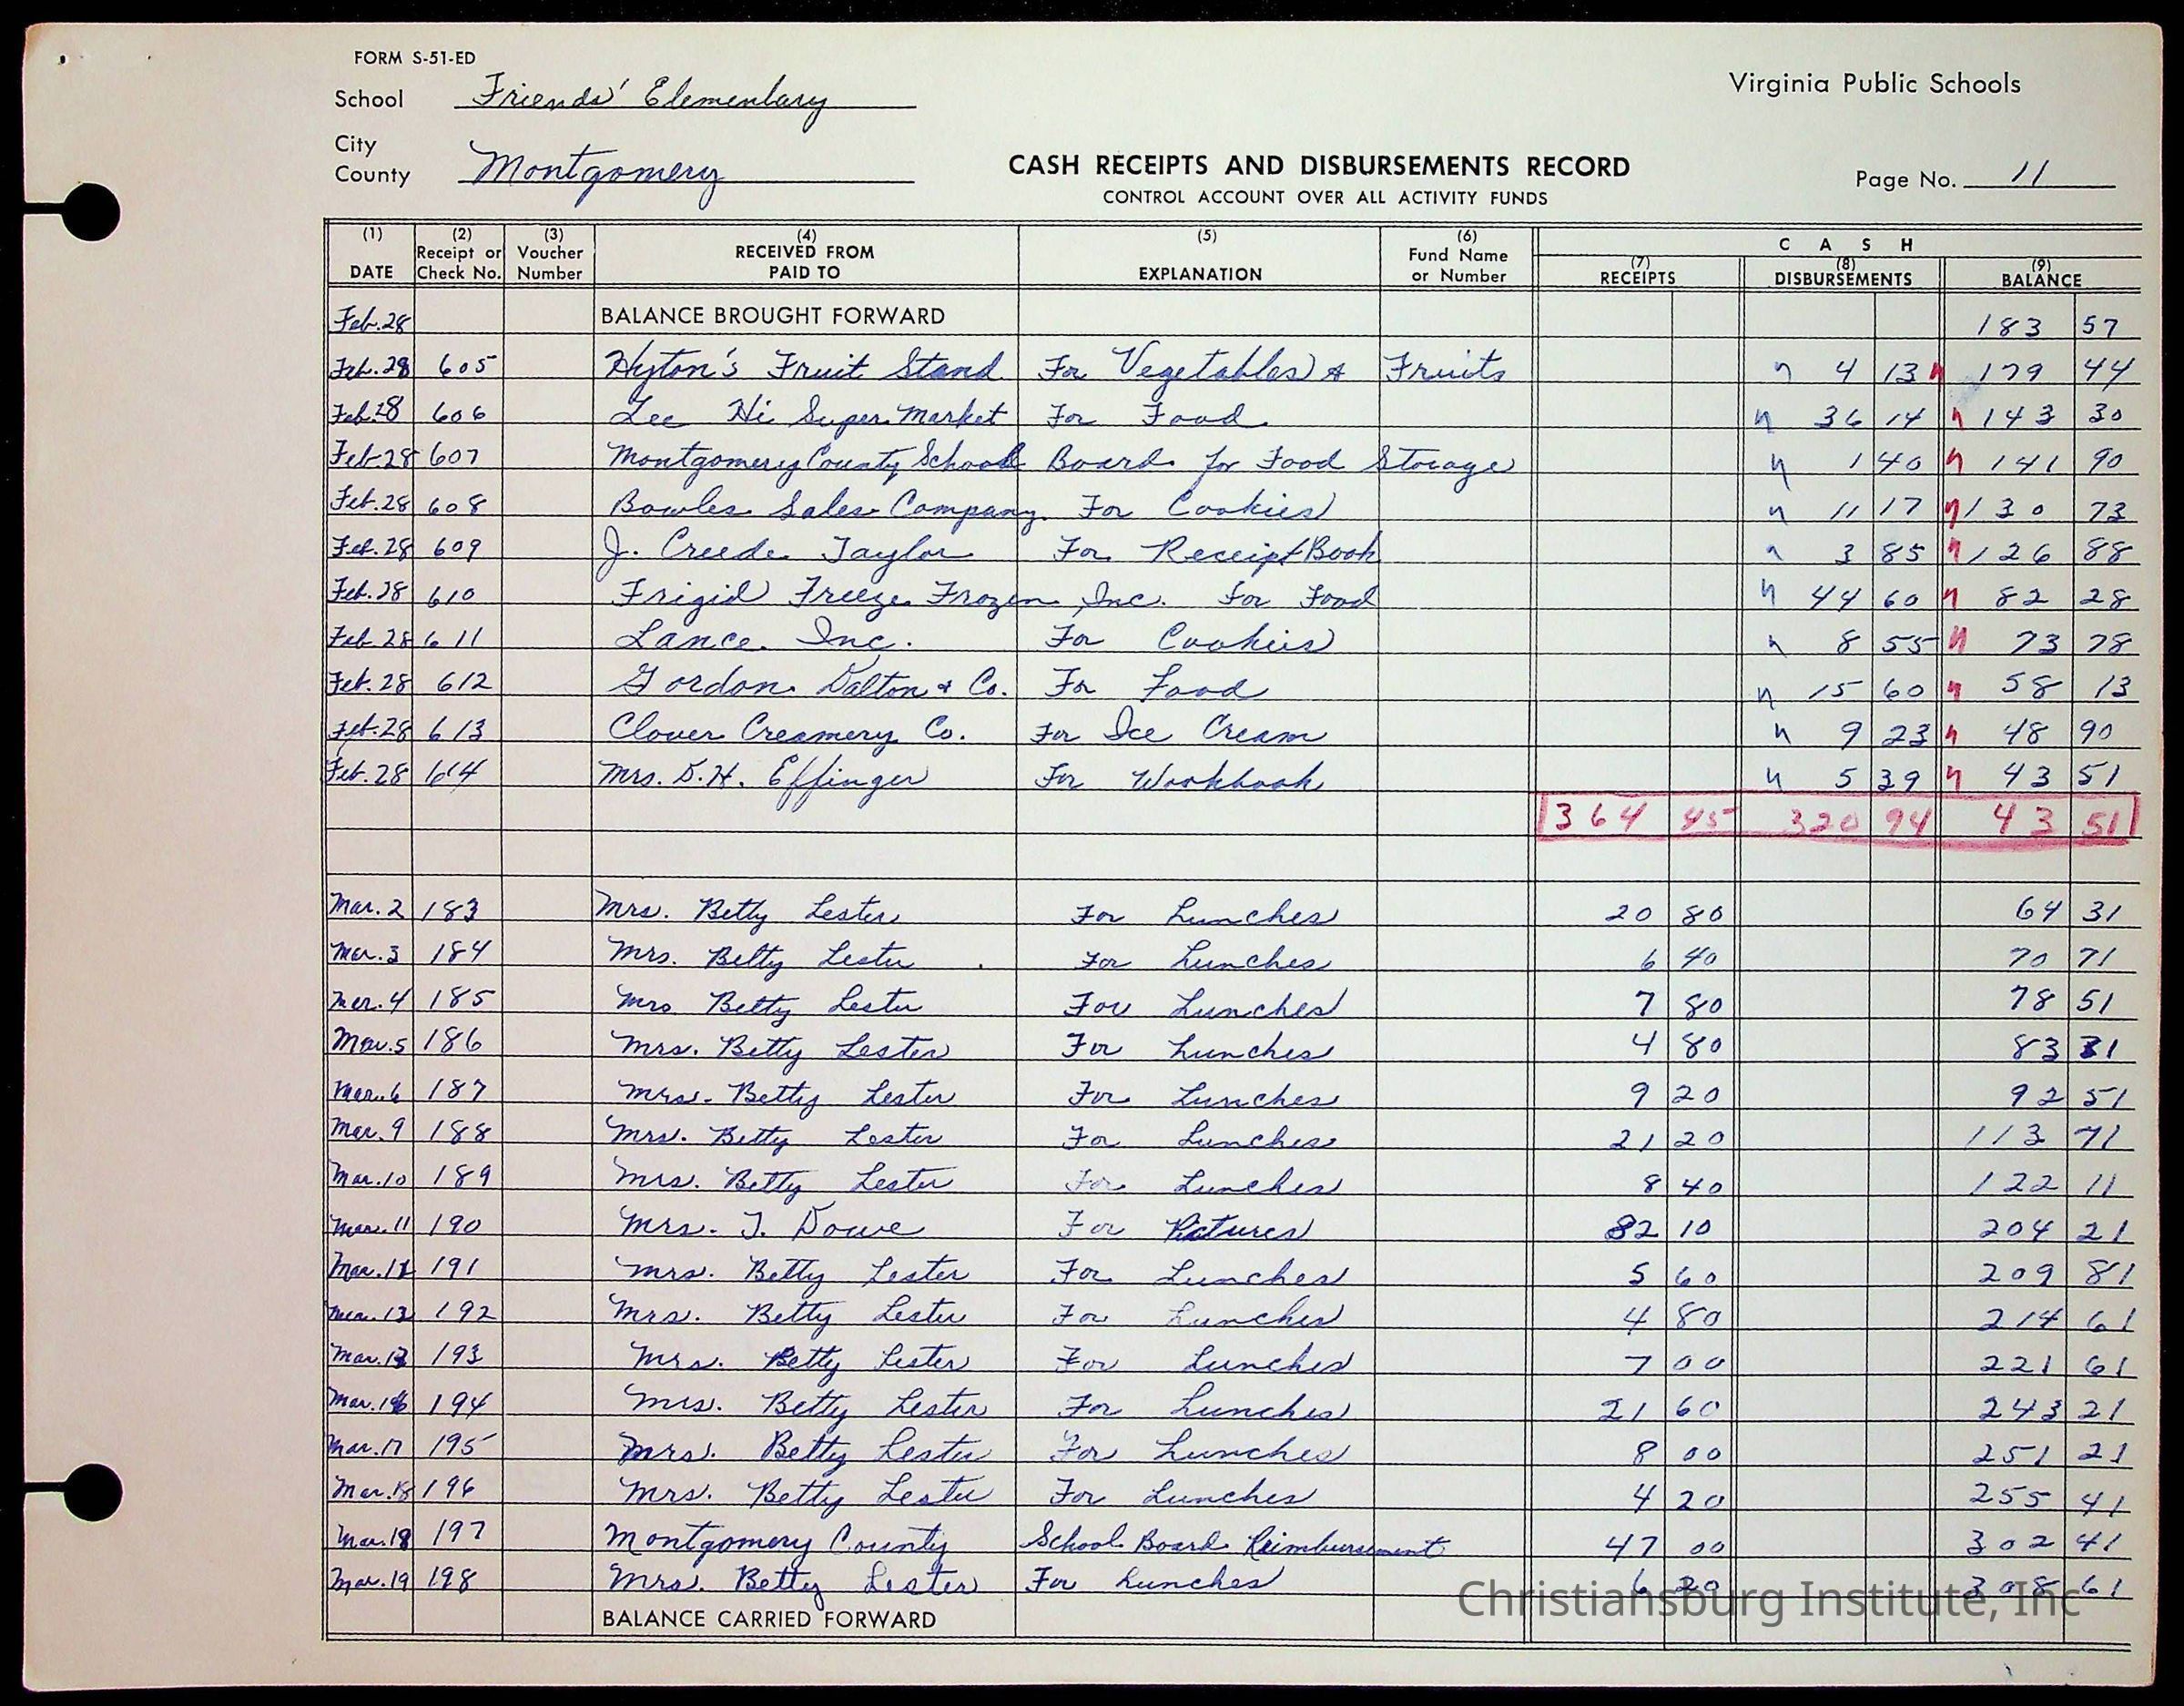 FORM S-51-ED
School Friends' Elementary
Virginia Public Schools
City
County Montgomery
CASH RECEIPTS AND DISBURSEMENTS RECORD
CONTROL ACCOUNT OVER ALL ACTIVITY FUNDS
Page No. 11
(1) DATE (2) Receipt or Check No. (3) Voucher Number (4) RECEIVED FROM PAID TO (5) EXPLANATION (6) Fund Name or Number CASH (7) RECEIPTS (8) DISBURSEMENTS (9) BALANCE
Feb. 28 BALANCE BROUGHT FORWARD 183 57
Feb. 28 605 Hyton's Fruit Stand For Vegetables & Fruits 4 13 179 44
Feb. 28 606 Lee Hi Super Market For Food 36 14 143 30
Feb. 28 607 Montgomery County School Board for Food Storage 1 40 141 90
Feb. 28 608 Bowles Sales Company For Cookies 11 17 130 73
Feb. 28 609 J. Creede Taylor For Receipt Book 3 85 126 88
Feb. 28 610 Frigid Freeze Frozen Inc. For Food 44 60 82 28
Feb. 28 611 Lance Inc. For Cookies 8 55 73 78
Feb. 28 612 Gordon Dalton & Co. For Food 15 60 58 13
Feb. 28 613 Clover Creamery Co. For Ice Cream 9 23 48 90
Feb. 28 614 Mrs. D.H. Effinger For Workbook 5 39 43 51
364 45 320 94 43 51
Mar. 2 183 Mrs. Betty Lester For Lunches 20 80 64 31
Mar. 3 184 Mrs. Betty Lester For Lunches 6 40 70 71
Mar. 4 185 Mrs Betty Lester For Lunches 7 80 78 51
Mar. 5 186 Mrs. Betty Lester For Lunches 4 80 83 31
Mar. 6 187 Mrs. Betty Lester For Lunches 9 20 92 51
Mar. 9 188 Mrs. Betty Lester For Lunches 21 20 113 71
Mar. 10 189 Mrs. Betty Lester For Lunches 8 40 122 11
Mar. 11 190 Mrs. J. Dowe For Pictures 82 10 204 21
Mar. 11 191 Mrs. Betty Lester For Lunches 5 60 209 81
Mar. 12 192 Mrs. Betty Lester For Lunches 4 80 214 61
Mar. 13 193 Mrs. Betty Lester For Lunches 7 00 221 61
Mar. 16 194 Mrs. Betty Lester For Lunches 21 60 243 21
Mar. 17 195 Mrs. Betty Lester For Lunches 8 00 251 21
Mar. 18 196 Mrs. Betty Lester For Lunches 4 20 255 41
Mar. 18 197 Montgomery County School Board Reimbursement 47 00 302 41
Mar. 19 198 Mrs. Betty Lester For Lunches 6 20 308 61
BALANCE CARRIED FORWARD
Christiansburg Institute, Inc